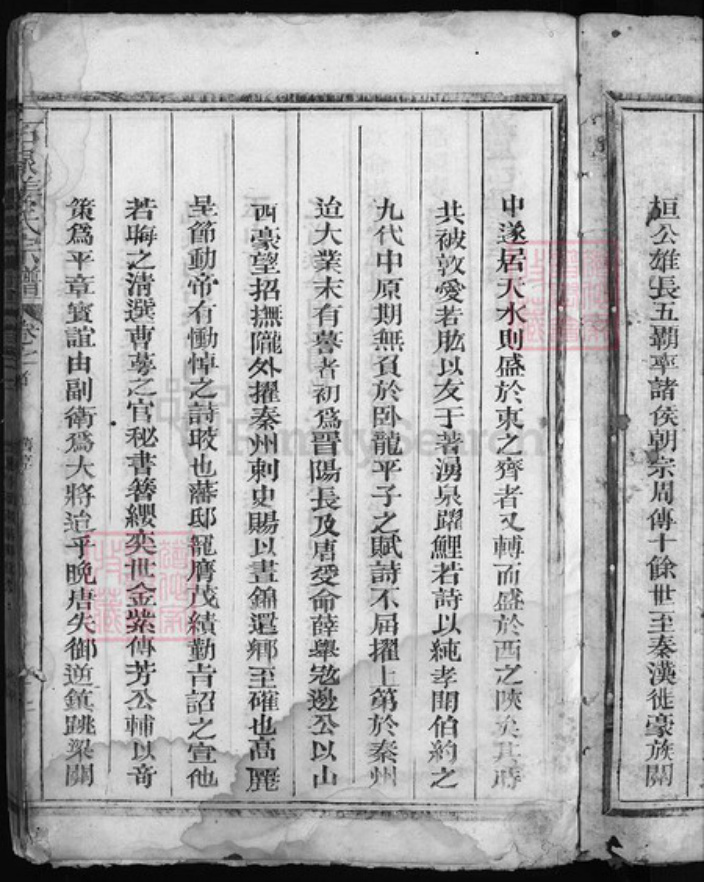 桓公雄長五霸率諸侯朝宗周傳十餘世至秦漢徙豪族關
中遂居天水則盛於東之齊者又轉而盛於西之陝矣其時
共被敦愛若肱以友于著湧泉躍鯉若詩以純孝聞伯約之
九代中原期無負於臥龍平子之賦詩不屈擢上第於秦州
迨大業末有謩者初爲晋陽長及唐受命薛舉寇邊公以山
西豪望招撫隴外擢秦州刺史賜以晝錦還鄉至確也高麗
呈節動帝有慟悼之詩晈也藩邸寵膺茂績勤吉詔之宣他
若晦之清選曹蕚之官秘書簪纓奕世金紫傳芳公輔以奇
策爲平章寶誼由副衛爲大將迨乎晚唐失御逆鎮跳梁關
氏宗譜 卷之首
FamilySearch